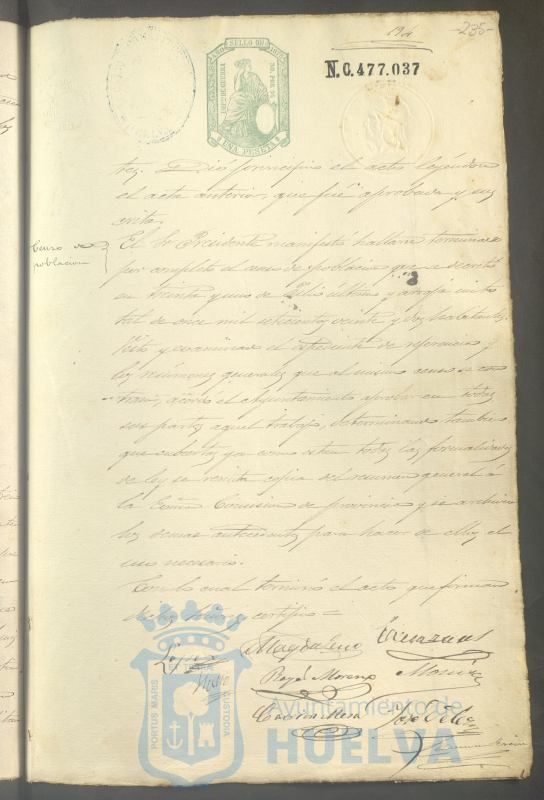 235
N.0.477.037
SELLO 11º
UNA PESETA
tes. Dió principio el acto leyéndose
el acta anterior, que fué aprobada y sus
crita.
Censo de
poblacion
El Sr. Presidente manifestó hallarse terminado
por completo el censo de poblacion que se decretó
en treinta y uno de Julio último y arroja un to
tal de once mil setecientos veinte y dos habitantes.
Visto y examinado el espediente de referencia y
los resúmenes generales que al mismo censo se con
traen, acordó el Ayuntamiento aprobar en todas
sus partes aquel trabajo, determinando tambien
que cubiertas ya como estan todas las formalidades
de ley se remita copia del resumen general á
la Comision de provincia y se archiven
los demas antecedentes para hacer de ellos el
uso necesario.
Con lo cual terminó el acto que firman
dichos Señores certifico =
Lopez
Magdaleno
Rafael Moreno
PORTUS MARIS
CUSTODIA
Ayuntamiento de
HUELVA